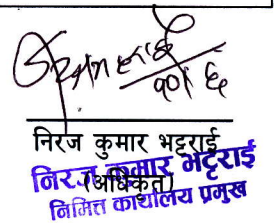 १०।६
निरज कुमार भट्टराई
(अधिकृत)
निरज कुमार भट्टराई
निमित्त कार्यालय प्रमुख